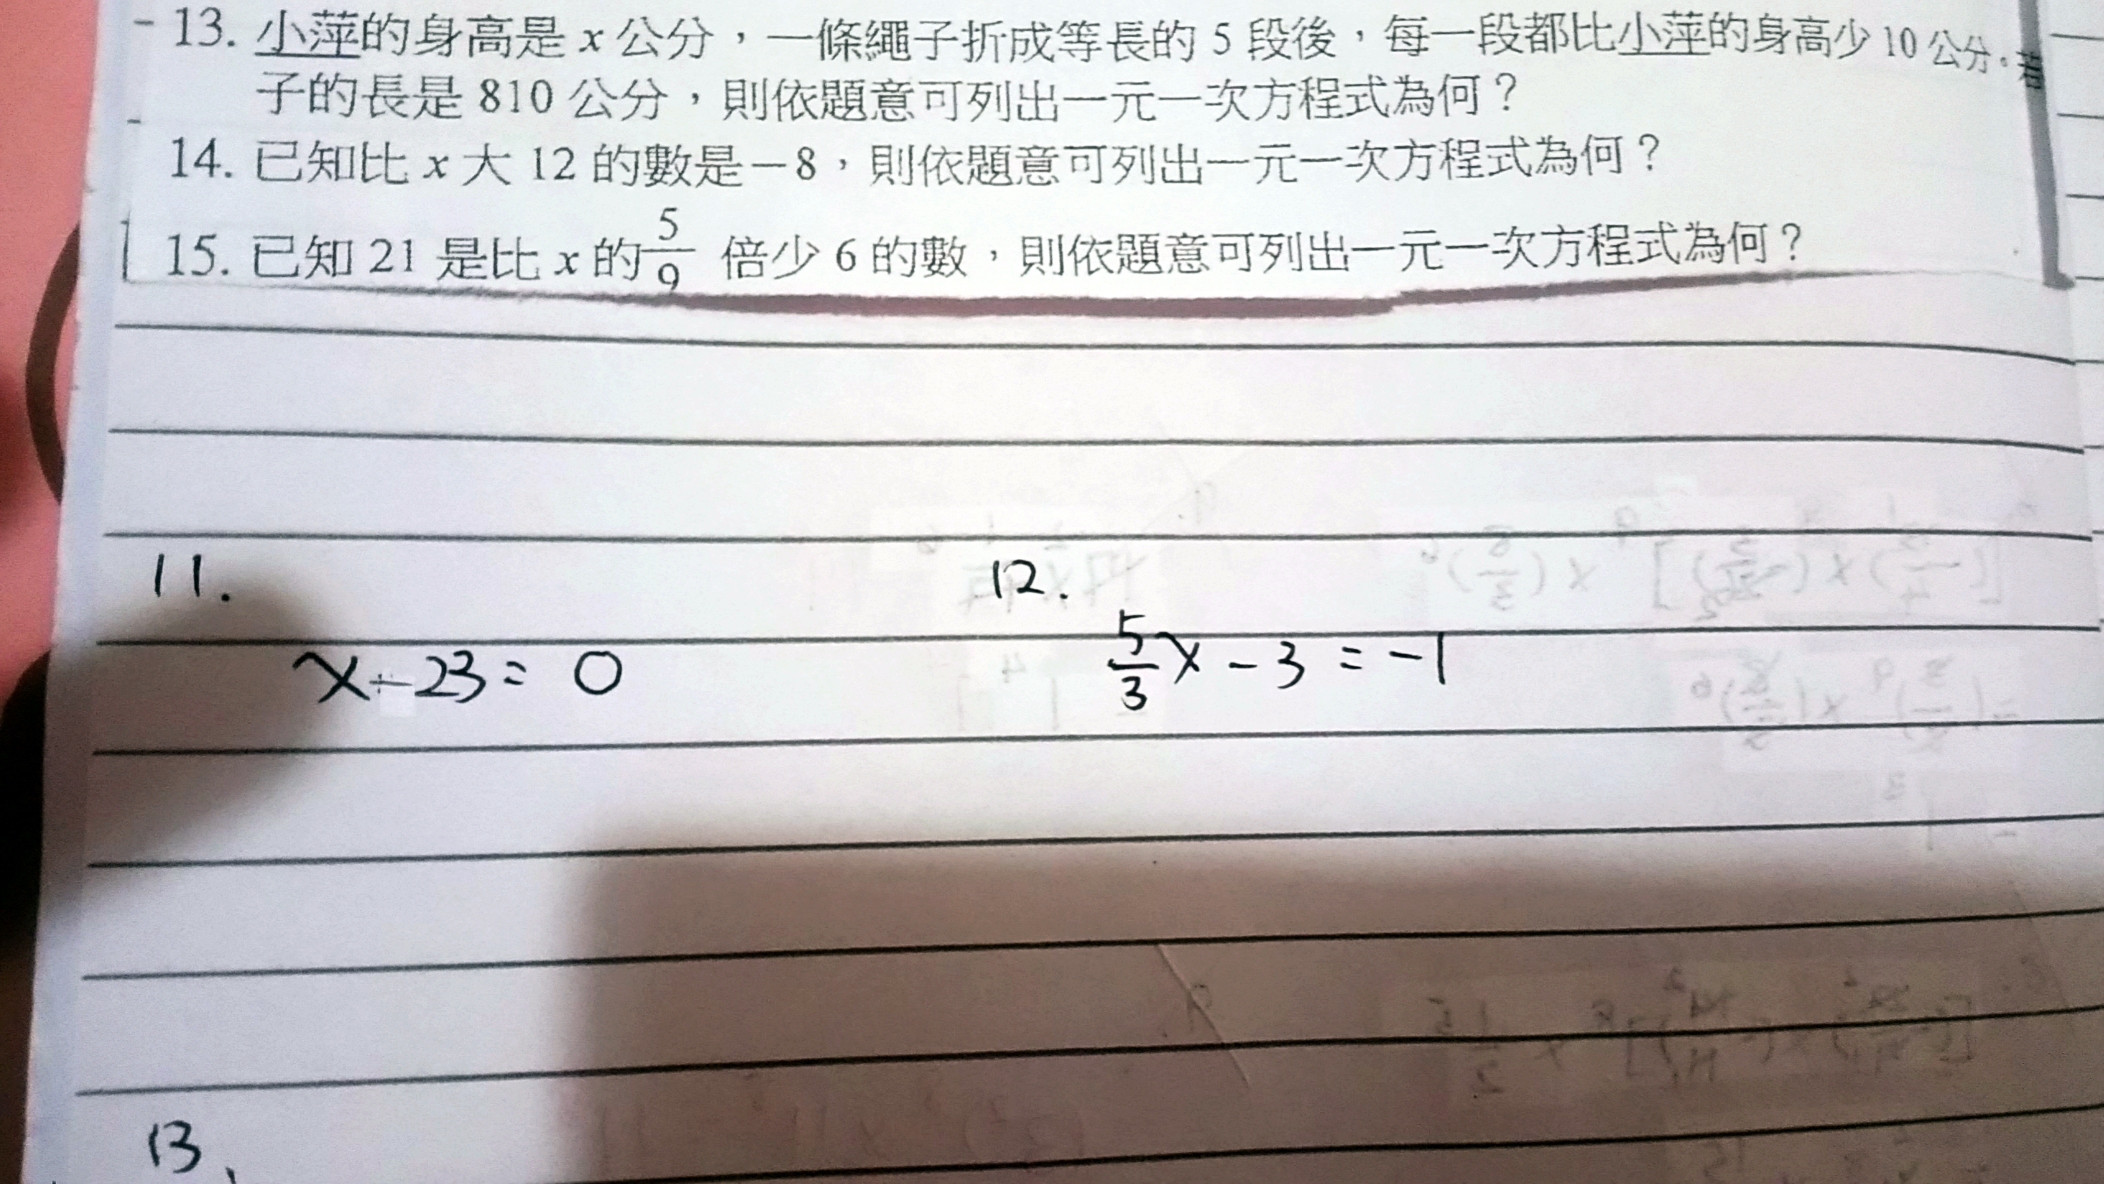 13. 小萍的身高是 x 公分，一條繩子折成等長的 5 段後，每一段都比小萍的身高少 10 公分。若
子的長是 810 公分，則依題意可列出一元一次方程式為何？
14. 已知比 x 大 12 的數是－8，則依題意可列出一元一次方程式為何？
15. 已知 21 是比 x 的 5/9 倍少 6 的數，則依題意可列出一元一次方程式為何？
11. 12.
x-23=0 5/3x-3=-1
13.